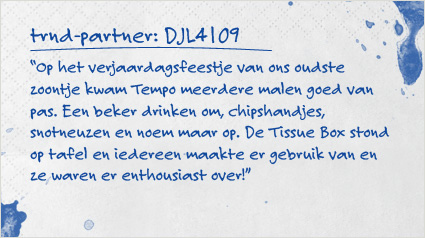 trnd-partner: DJL4109
“Op het verjaardagsfeestje van ons oudste
zoontje kwam Tempo meerdere malen goed van
pas. Een beker drinken om, chipshandjes,
snotneuzen en noem maar op. De Tissue Box stond
op tafel en iedereen maakte er gebruik van en
ze waren er enthousiast over!”